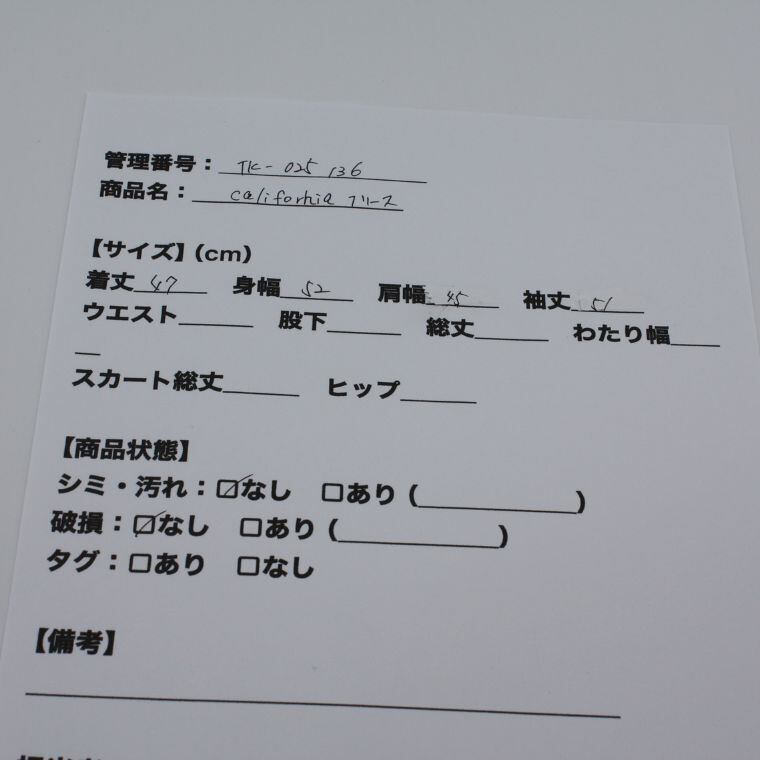 管理番号：TK-025 136
商品名：California フリース
【サイズ】(cm)
着丈 47 身幅 52 肩幅 45 袖丈 51
ウエスト______ 股下______ 総丈______ わたり幅____
__
スカート総丈______ ヒップ______
【商品状態】
シミ・汚れ：☑なし □あり (____________)
破損：☑なし □あり (____________)
タグ：□あり □なし
【備考】